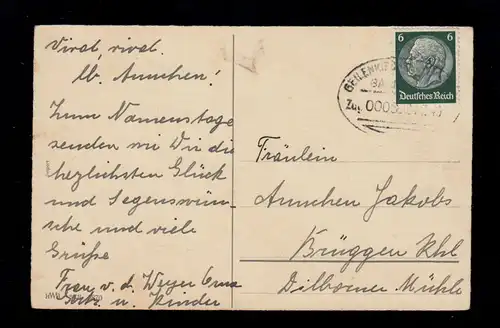 Vivat, vivat,
lb. Annchen!
Zum Namenstage
senden wir Dir die
herzlichsten Glück
und Segenswün-
sche und viele
Grüße
Frau v. d. Weyer
u. Kinder
6 6
Deutsches Reich
GEILENKI
Zug 000
Fräulein
Annchen Jakobs
Brüggen Rhl
Dilborner Mühle